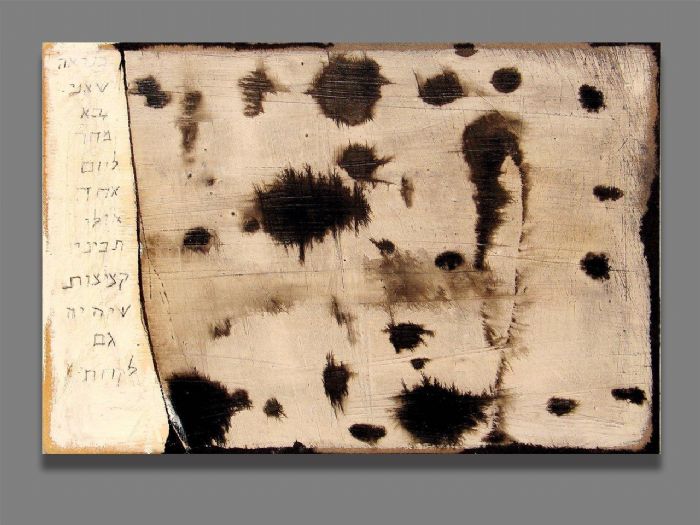 כנראה
שאני
בא
מחר
ליום
אחד
אולי
תכיני
קציצות
שיהיה
גם
לקחת